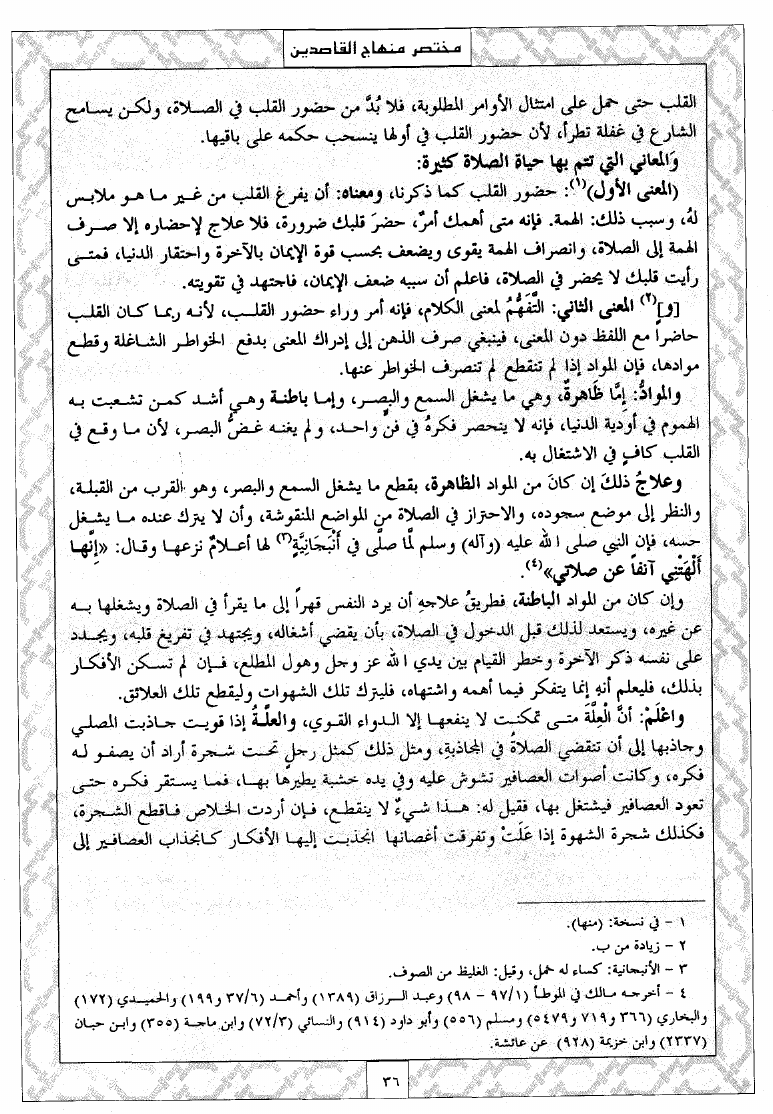 مختصر منهاج القاصدين
القلب حتى حمل على امتثال الأوامر المطلوبة، فلا بُدَّ من حضور القلب في الصلاة، ولكن يسامح
الشارع في غفلة تطرأ، لأن حضور القلب في أولها ينسحب حكمه على باقيها.
وَالمعاني التي تتم بها حياة الصلاة كثيرة:
(المعنى الأول)(١): حضور القلب كما ذكرنا، ومعناه: أن يفرغ القلب من غير ما هو ملابس
لهُ، وسبب ذلك: الهمة. فإنه متى أهمك أمرٌ، حضرَ قلبك ضرورة، فلا علاج لإحضاره إلا صرف
الهمة إلى الصلاة، وانصراف الهمة يقوى ويضعف بحسب قوة الإيمان بالآخرة واحتقار الدنيا، فمتى
رأيت قلبك لا يحضر في الصلاة، فاعلم أن سببه ضعف الإيمان، فاجتهد في تقويته.
[و](٢) المعنى الثاني: التَّفَهُّمُ لمعنى الكلام، فإنه أمر وراء حضور القلب، لأنه ربما كان القلب
حاضراً مع اللفظ دون المعنى، فينبغي صرف الذهن إلى إدراك المعنى بدفع الخواطر الشاغلة وقطع
موادها، فإن المواد إذا لم تنقطع لم تنصرف الخواطر عنها.
والموادُّ: إمَّا ظَاهرةٌ، وهي ما يشغل السمع والبصر، وإما باطنة وهي أشد كمن تشعبت به
الهموم في أودية الدنيا، فإنه لا ينحصر فكرهُ في فنٍّ واحد، ولم يغنه غضُّ البصر، لأن ما وقع في
القلب كافٍ في الاشتغال به.
وعلاجُ ذلكَ إن كانَ من المواد الظاهرة، بقطع ما يشغل السمع والبصر، وهو القرب من القبلة،
والنظر إلى موضع سجوده، والاحتراز في الصلاة من المواضع المنقوشة، وأن لا يترك عنده ما يشغل
حسه، فإن النبي صلى الله عليه (وآله) وسلم لَمَّا صلَّى في أنْبَجَانِيَّةٍ(٣) لها أعلامٌ نزعها وقال: «إِنَّها
أَلْهَتْنِي آنفاً عن صلاتي»(٤).
وإن كان من المواد الباطنة، فطريقُ علاجهِ أن يرد النفس قهراً إلى ما يقرأ في الصلاة ويشغلها به
عن غيره، ويستعد لذلك قبل الدخول في الصلاة، بأن يقضي أشغاله، ويجتهد في تفريغ قلبه، ويجدد
على نفسه ذكر الآخرة وخطر القيام بين يدي الله عز وجل وهول المطلع، فإن لم تسكن الأفكار
بذلك، فليعلم أنه إنما يتفكر فيما أهمه واشتهاه، فليترك تلك الشهوات وليقطع تلك العلائق.
واعْلَمْ: أنَّ العِلَّةَ متى تمكنت لا ينفعها إلا الدواء القوي، والعلَّةُ إذا قويت جاذبت المصلي
وجاذبها إلى أن تنقضي الصلاةُ في المجاذبةِ، ومثل ذلك كمثل رجلٍ تحت شجرة أراد أن يصفو له
فكره، وكانت أصوات العصافير تشوش عليه وفي يده خشبة يطيرها بها، فما يستقر فكره حتى
تعود العصافير فيشتغل بها، فقيل له: هذا شيءٌ لا ينقطع، فإن أردت الخلاص فاقطع الشجرة،
فكذلك شجرة الشهوة إذا عَلَتْ وتفرقت أغصانها انجذبت إليها الأفكار كانجذاب العصافير إلى
١ - في نسخة: (منها).
٢ - زيادة من ب.
٣ - الأنبجانية: كساء له خمل، وقيل: الغليظ من الصوف.
٤ - أخرجه مالك في الموطأ (٩٧/١ - ٩٨) وعبد الرزاق (١٣٨٩) وأحمد (٣٧/٦ و١٩٩) والحميدي (١٧٢)
والبخاري (٣٦٦ و٧١٩ و٥٤٧٩) ومسلم (٥٥٦) وأبو داود (٩١٤) والنسائي (٧٢/٣) وابن ماجة (٣٥٥) وابن حبان
(٢٣٣٧) وابن خزيمة (٩٢٨) عن عائشة.
٣٦